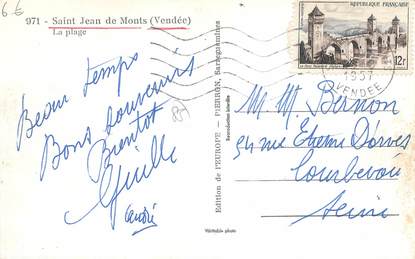 6 €
971 - Saint Jean de Monts (Vendée)
La plage
Beau temps
Bons souvenirs
Bientôt
85
Edition de l'EUROPE - PIERRON, Sarreguemines
Reproduction interdite
Véritable photo
RÉPUBLIQUE FRANÇAISE
12f
1957
VENDÉE
M. M. Bernon
54 rue Etienne Dorves
Courbevoie
Seine